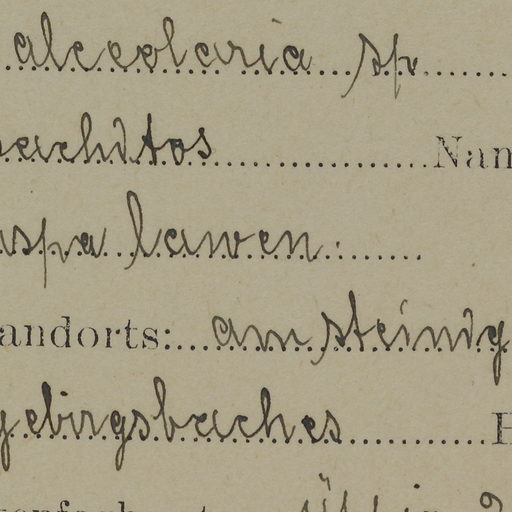 alceolaria sp.
achitos Nam
aspa lawen.
andorts: am steinig
gebirgsbaches H